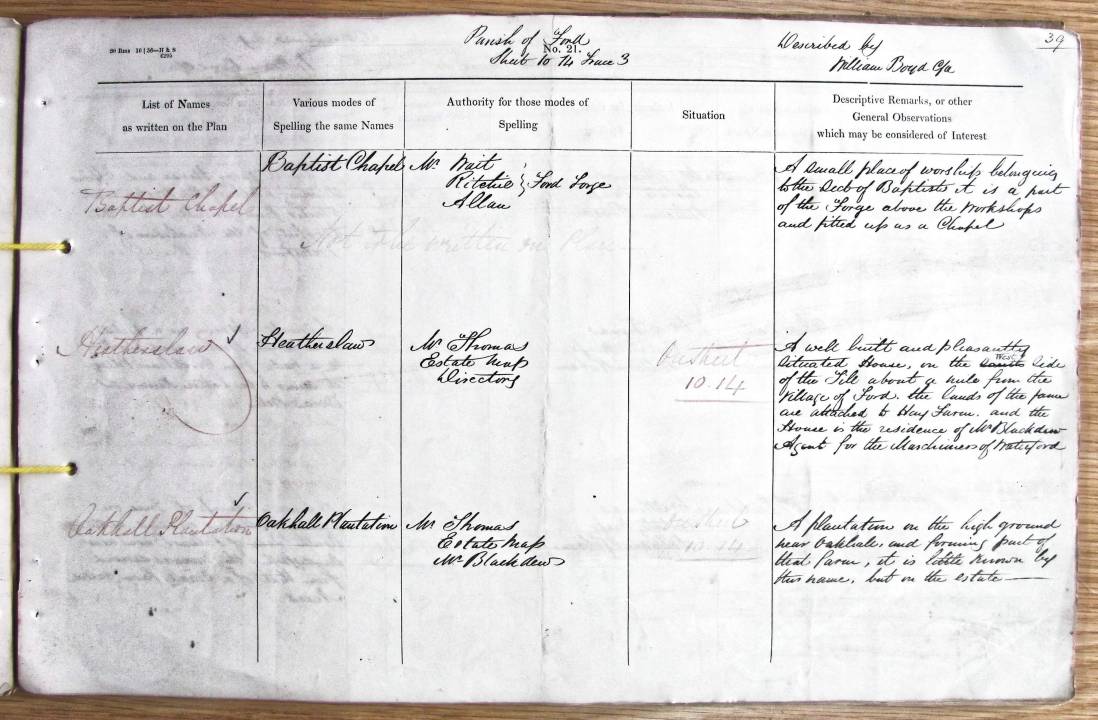 20 Rms 10 | 56—H & S
6295
Parish of Ford
No. 21.
Sheet 10 14 Trace 3
Described by
William Boyd C/a
39
List of Names
as written on the Plan
Various modes of
Spelling the same Names
Authority for those modes of
Spelling
Situation
Descriptive Remarks, or other
General Observations
which may be considered of Interest
Baptist Chapel
Baptist Chapel
Mr. Wait
Ritchie } Ford Forge
Allan
A small place of worship belonging
to the Sect of Baptists it is a part
of the Forge above the workshops
and fitted up as a Chapel
Not to be written on Plan
Heatherslaw
Heatherslaw
Mr Thomas
Estate Map
Directory
On sheet
10.14
A well built and pleasantly
situated House, on the South West side
of the Till about a mile from the
village of Ford. the lands of the farm
are attached to Hay Farm. and the
House is the residence of Mr Blackden
Agent for the Marchioness of Waterford
Oakhall Plantation
Oakhall Plantation
Mr Thomas
Estate Map
Mr Blackden
On sheet
10.14
A plantation on the high ground
near Oakhall, and forming part of
that farm, it is little known by
this name, but on the estate —